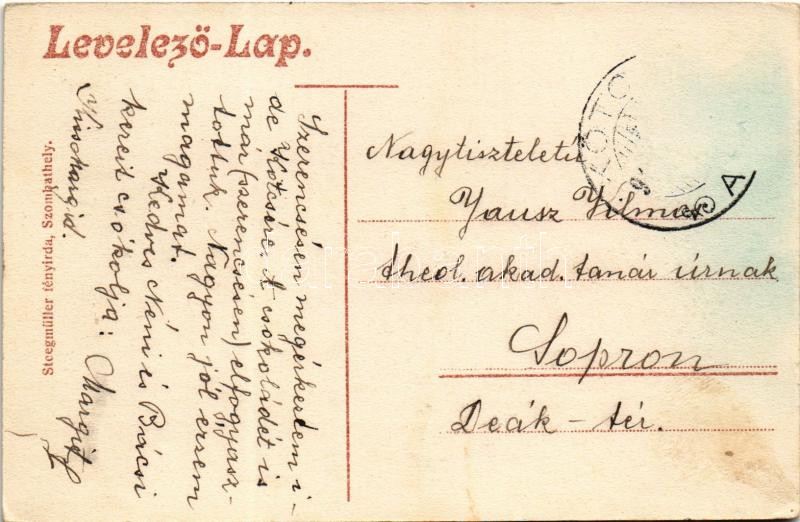 Levelező-Lap.
Szerencsésen megérkeztem i-
de Kótcsére. A csokoládét is
már (szerencsésen) elfogyasz-
tottuk. Nagyon jól érzem
magamat.
Kedves Néni és Bácsi
kezeit csókolja: Margit
Steegmüller fényirda, Szombathely.
Nagytiszteletű
Jausz Vilmos
theol. akad. tanár úrnak
Sopron
Deák-tér.